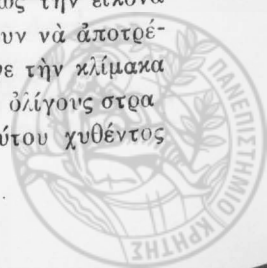 τὴν εἰκόνα
νὰ ἀποτρέ-
τὴν κλίμακα
ὀλίγους στρα
χυθέντος
ΠΑΝΕΠΙΣΤΗΜΙΟ ΚΡΗΤΗΣ